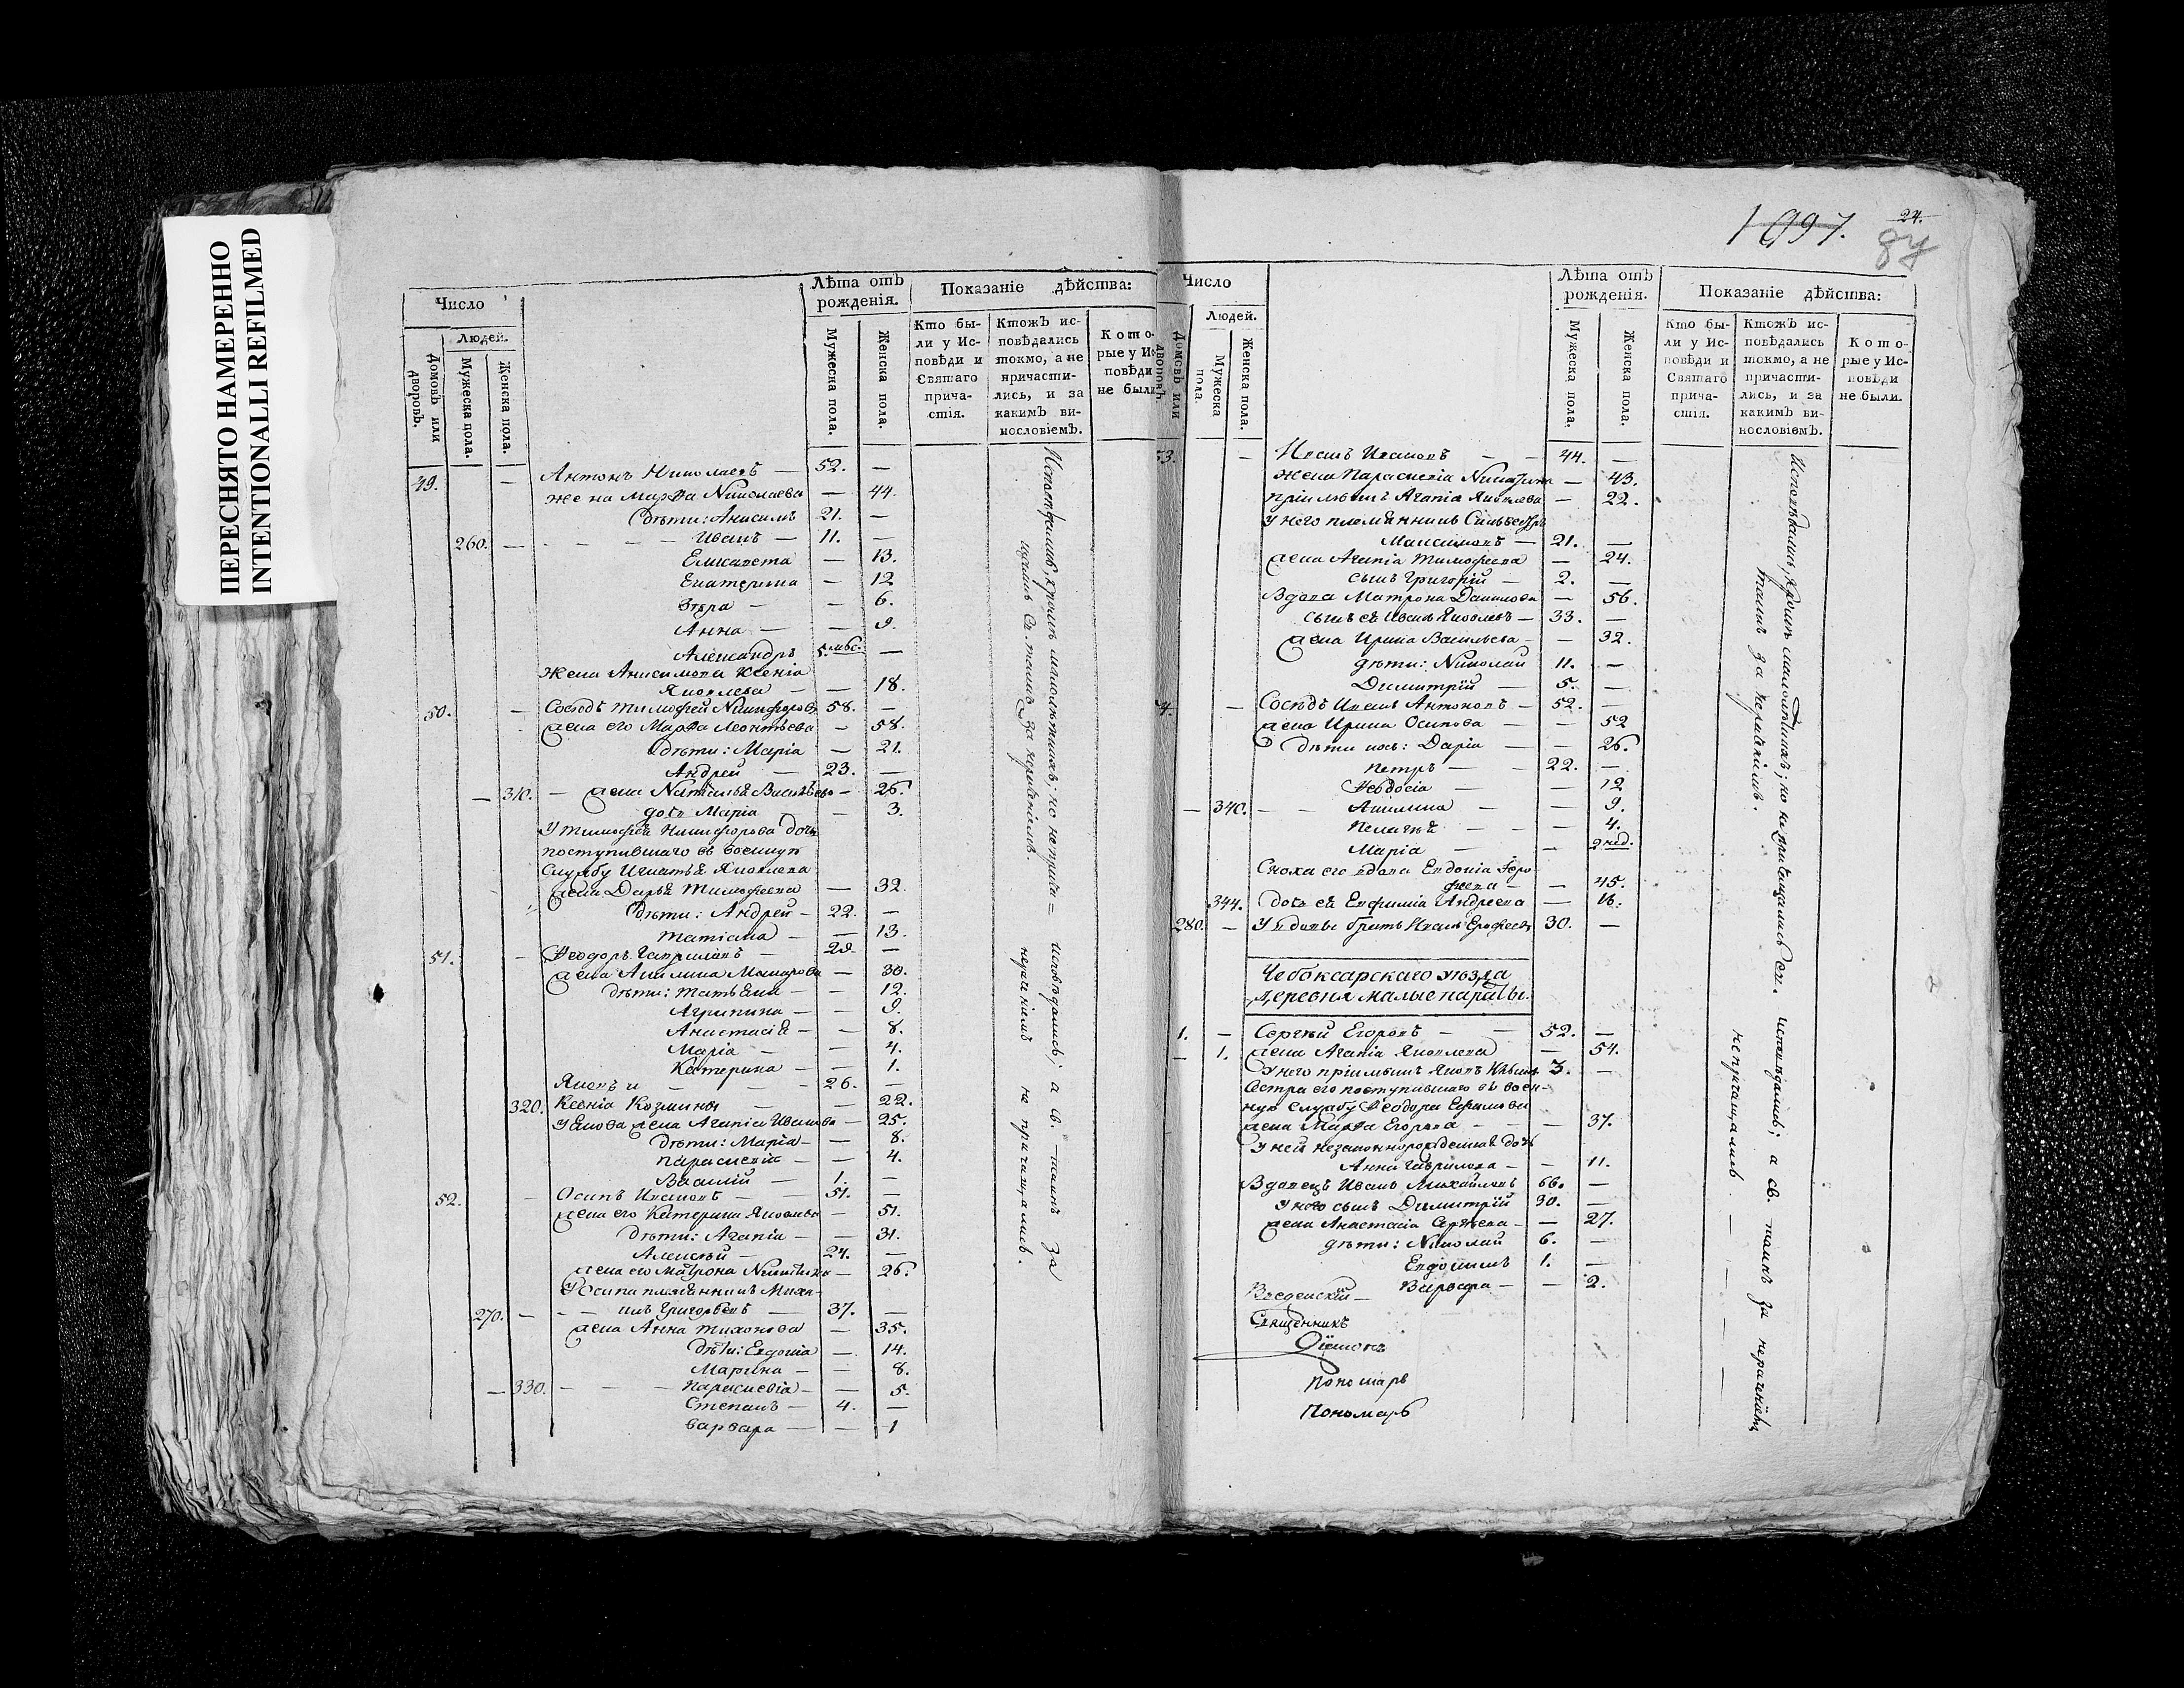 ПЕРЕСНЯТО НАМЕРЕННО
INTENTIONALLI REFILMED
Число
Людей.
Домовъ или дворовъ.
Мужеска пола.
Женска пола.
Лѣта отъ рожденія.
Мужеска пола.
Женска пола.
Показаніе дѣйства:
Кто бы-
ли у Ис-
повѣди и
Святаго
прича-
стія.
Ктожъ ис-
повѣдались
токмо, а не
причасти-
лись, и за
какимъ ви-
нословіемъ.
Кото-
рые у Ис
повѣди
не были
49. — Антонъ Николаевъ — 52. —
жена Марѳа Николаева — 44.
Дѣти: Анисимъ 21. —
260. — Иванъ — 11. —
Елисавета — 13.
Екатерина — 12
Вѣра — — 6.
Анна — — 9.
Александръ 5. мѣс. —
жена Анисимова Ксенія
Яковлева — — 18.
50. — Сосѣдъ Тимофей Никифоровъ 58. —
жена его Марѳа Леонтьева — 58.
Дѣти: Марія — 21.
Андрей — 23. —
— 310. — жена Наталья Васильева — 26.
дочь Марія — 3.
У Тимофея Никифорова дочь
поступившаго въ военную
службу Игнатья Яковлева
жена Дарья Тимофеева — 32
Дѣти: Андрей — 22. —
Татіана — — 13.
51. — Ѳеодоръ Гавриловъ — 29. —
жена Акилина Макарова — 30.
дѣти: Татьяна — — 12.
Агрипина — — 9.
Анастасія — — 8.
Марія — — 4.
Катерина — — 1.
Яковъ и — — 26. —
320. Ксенія Козмины — — 22.
У Якова жена Агапія Иванова — 25.
дѣти: Марія — — 8.
Параскевія — — 4.
Василій — 1. —
52. — Осипъ Ивановъ — 51. —
жена его Катерина Яковлева — 51.
дѣти: Агапія — — 31.
Алексѣй — 24. —
жена его Матрона Никитина — 26.
У Осипа племянникъ Миха-
270. — илъ Григорьевъ — 37. —
жена Анна Тихонова — 35.
дѣти: Евдокія — 14.
Марина — — 8.
— 330. — Параскевія — — 5.
Степанъ — 4. —
Варвара — — 1
1097.
24.
84
Число
Людей.
Домовъ или дворовъ.
Мужеска пола.
Женска пола.
Лѣта отъ рожденія.
Мужеска пола.
Женска пола.
Показаніе дѣйства:
Кто бы-
ли у Ис-
повѣди и
Святаго
прича-
стія.
Ктожъ ис-
повѣдались
токмо, а не
причасти-
лись, и за
какимъ ви-
нословіемъ.
Кото-
рые у Ис-
повѣди
не были.
53. — Иванъ Ивановъ — 44. —
жена Параскевія — 43.
пріемышъ Агапія Яковлева — 22.
У него племянникъ Сильвестръ
Максимовъ — 21. —
жена Агапія Тимофеева — 24.
сынъ Григорій — 2. —
Вдова Матрона Данилова — 56.
сынъ ея Иванъ Яковлевъ — 33. —
жена Ирина Васильева — — 32.
дѣти: Николай 11. —
Димитрій — 5. —
— Сосѣдъ Иванъ Антоновъ — 52. —
жена Ирина Осипова — — 52
дѣти ихъ: Дарія — — 26.
Петръ — — 22. —
Ѳеодосія — — 12
— 340. — Акилина — — 9.
Пелагія — — 4.
Марія — — 2 нед.
Сноха его вдова Евдокія Еро-
феева — — 45.
344. дочь ея Евфимія Андреева — 16.
280. — У вдовы братъ Иванъ Ерофеевъ 30. —
Чебоксарскаго уѣзда
деревня малые параты.
1. — Сергѣй Егоровъ — — 52. —
— 1. жена Агапія Яковлева — 54.
У него пріемышъ Яковъ 3. —
Сестра его поступившаго въ воен-
ную службу Ѳеодора Ефимова
жена Марѳа Егорова — — 37.
У ней незаконнорожденная дочь
Анна Гаврилова — — 11.
Вдовецъ Иванъ Михайловъ 66. —
У него сынъ Димитрій 30. —
жена Анастасія Сергѣева — — 27.
дѣти: Николай 6. —
Евдокимъ 1. —
Варвара — — 2.
Введенскій —
Священникъ
Діаконъ
Пономарь
Пономарь